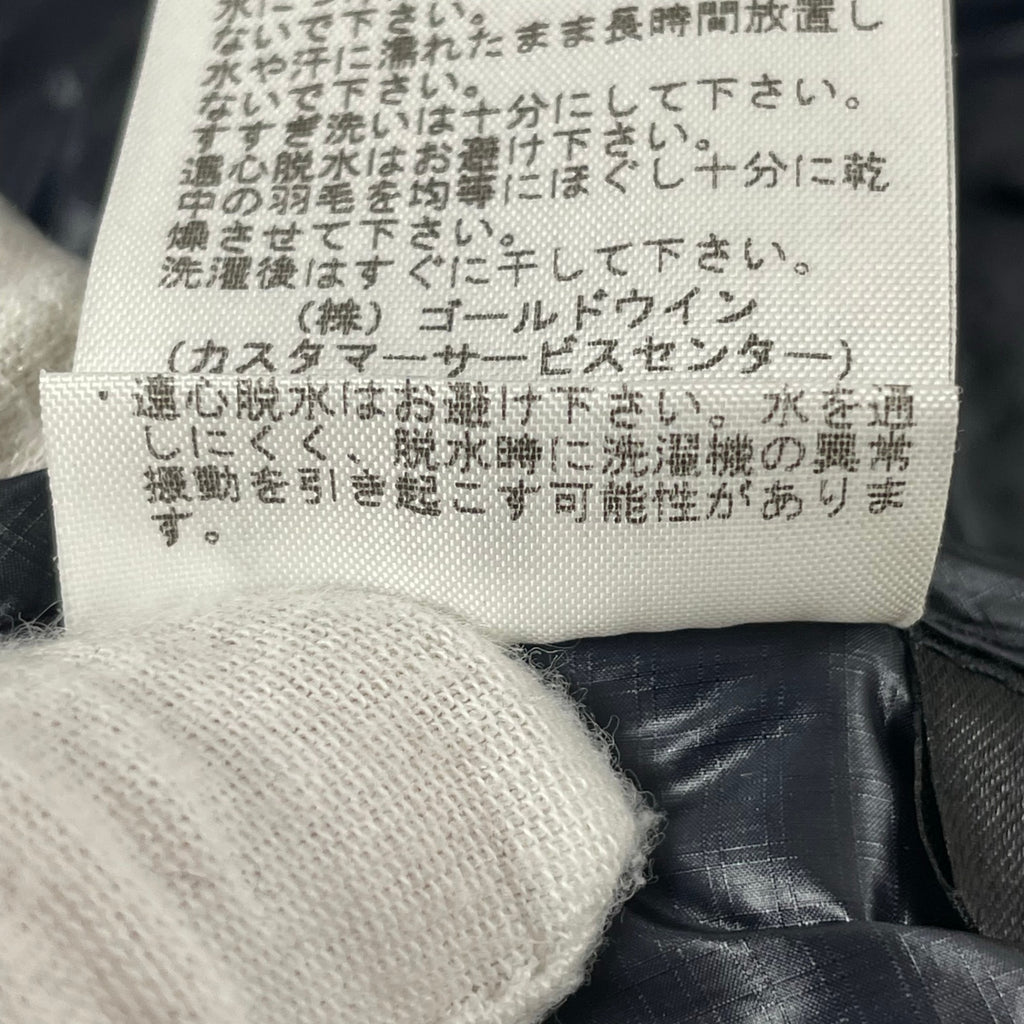 ないで下さい。
水や汗に濡れたまま長時間放置し
ないで下さい。
すすぎ洗いは十分にして下さい。
遠心脱水はお避け下さい。
中の羽毛を均等にほぐし十分に乾
燥させて下さい。
洗濯後はすぐに干して下さい。
(株) ゴールドウイン
(カスタマーサービスセンター)
・遠心脱水はお避け下さい。水を通
しにくく、脱水時に洗濯機の異常
振動を引き起こす可能性がありま
す。